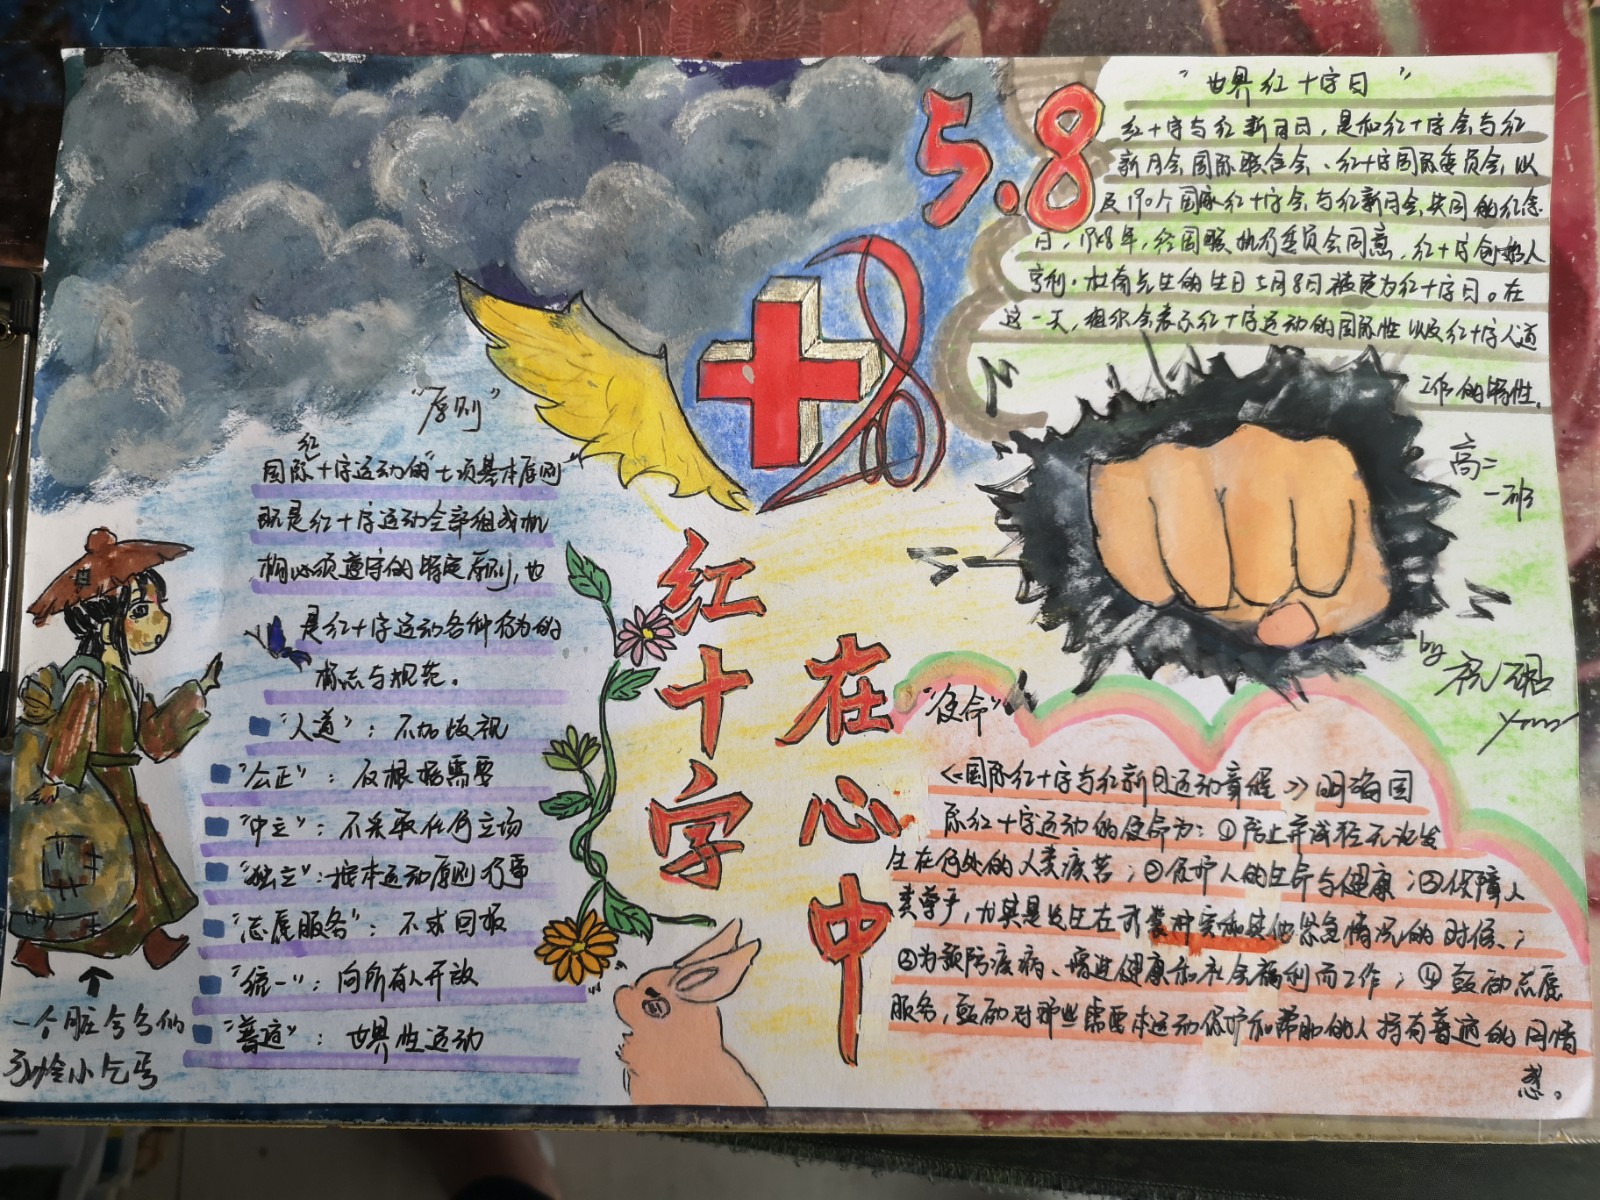 5.8
"世界红十字日"
红十字与红新月日，是和红十字会与红
新月会国际联合会、红十字国际委员会，以
及190个国家红十字会与红新月会共同的纪念
日，1948年，经国联执行委员会同意，红十字创始人
亨利·杜南先生的生日5月8日被定为红十字日。在
这一天，组织会表示红十字运动的国际性以及红十字人道
工作的特性。
高二
一班
by 祝
"原则"
国际红十字运动的"七项基本原则
既是红十字运动全部组成机
构必须遵守的特定原则，也
是红十字运动各种行为的
标志与规范。
"人道"：不加歧视
"公正"：仅根据需要
"中立"：不采取任何立场
"独立"：按本运动原则行事
"志愿服务"：不求回报
"统一"：向所有人开放
"普遍"：世界性运动
一个脏兮兮的
可怜小乞丐
红十字
在心中
"使命"
《国际红十字与红新月运动章程》明确国
际红十字运动的使命为：①防止并减轻无论发
生在何处的人类疾苦；②保护人的生命与健康；③保障人
类尊严，尤其是发生在武装冲突和其他紧急情况的时候、；
③为预防疾病、增进健康和社会福利而工作；④鼓励志愿
服务，鼓励对那些需要本运动保护和帮助的人持有普遍的同情
感。